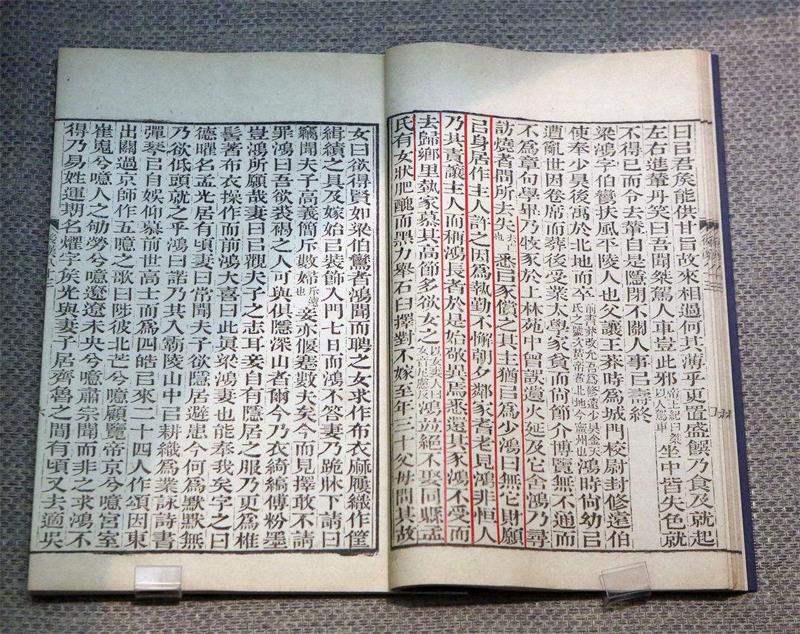 曰㠯君侯能供甘旨故來相過何其薄乎更置盛饌乃食及就起
左右進輦丹笑曰吾聞桀駕人車豈此邪帝王紀曰桀以人駕車坐中皆失色就
不得已而令去輦自是隱閉不關人事㠯壽終
梁鴻字伯鸞扶風平陵人也父讓王莽時爲城門校尉封修遠伯
使奉少昊後寓於北地而卒前書莽改允吾爲修遠少昊金天氏之號次黃帝者北地今寧州也鴻時尚幼㠯
遭亂世因卷席而葬後受業太學家貧而尚節介博覽無不通而
不爲章句學畢乃牧豕於上林苑中曾誤遺火延及它舍鴻乃尋
訪燒者問所去失去亡也悉㠯豕償之其主猶㠯爲少鴻曰無它財願
㠯身居作主人許之因爲執勤不懈朝夕鄰家耆老見鴻非恒人
乃共責讓主人而稱鴻長者於是始敬異焉悉還其豕鴻不受而
去歸鄉里埶家慕其高節多欲女之以女妻人曰女音尼慮反鴻並絕不娶同縣孟
氏有女狀肥醜而黑力舉石臼擇對不嫁至年三十父母問其故
女曰欲得賢如梁伯鸞者鴻聞而聘之女求作布衣麻屨織作筐
緝績之具及嫁始㠯裝飾入門七日而鴻不荅妻乃跪牀下請曰
竊聞夫子高義簡斥數婦斥遠也妾亦偃蹇數夫矣今而見擇敢不請
罪鴻曰吾欲裘褐之人可與俱隱深山者爾今乃衣綺縞傅粉墨
豈鴻所願哉妻曰㠯觀夫子之志耳妾自有隱居之服乃更爲椎
髻著布衣操作而前鴻大喜曰此眞梁鴻妻也能奉我矣字之曰
德曜名孟光居有頃妻曰常聞夫子欲隱居避患今何爲默默無
乃欲低頭就之乎鴻曰諾乃共入霸陵山中㠯耕織爲業詠詩書
彈琴㠯自娛仰慕前世高士而爲四皓㠯來二十四人作頌因東
出關過京師作五噫之歌曰陟彼北芒兮噫顧覽帝京兮噫宮室
崔嵬兮噫人之劬勞兮噫遼遼未央兮噫肅宗聞而非之求鴻不
得乃易姓運期名燿字侯光與妻子居齊魯之閒有頃又去適吳